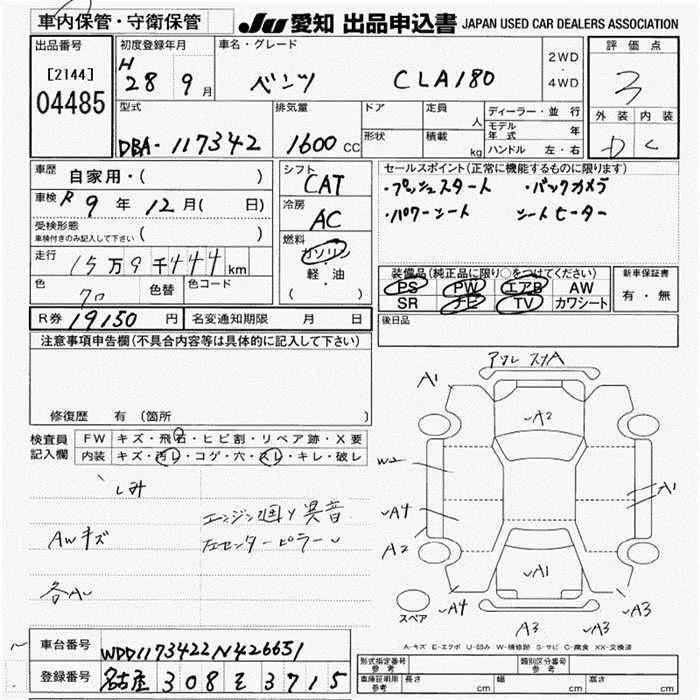 車内保管・守衛保管 JU 愛知 出品申込書 JAPAN USED CAR DEALERS ASSOCIATION
出品番号 [2144] 04485
初度登録年月 H 28 9 月
車名・グレード ベンツ CLA180
2WD ・ 4WD
評価点 3
外装 内装 D C
型式 DBA-117342
排気量 1600 CC
ドア 形状
定員 人 積載 kg
ディーラー・並行
モデル年式 年
ハンドル 左・右
車歴 自家用・( )
車検 R 9 年 12 月 ( 日)
受検形態 車検付きのみ記入して下さい ( )
走行 15 万 9 千 444 km
色 クロ 色替 色コード
R券 19150 円 名変通知期限 月 日
シフト CAT
冷房 AC
燃料 ガソリン ・ 軽・油 ( )
セールスポイント(正常に機能するものに限ります)
・プッシュスタート ・バックカメラ
・パワーシート シートヒーター
装備品(純正品に限り○をつけてください)
PS PW エアB AW
SR ナビ TV カワシート
新車保証書 有・無
後日品
注意事項申告欄(不具合内容等は具体的に記入して下さい)
修復歴 有 (箇所 )
検査員記入欄
FW キズ・飛石・ヒビ割・リペア跡・X要
内装 キズ・汚レ・コゲ・穴・スレ・キレ・破レ
シミ
エンジン廻り異音
AWキズ 左センターピラー
各A
A1
A2
W2
A4
A2
A1
A1
A4
A3
A3
A3
スペア
A-キズ E-エクボ U-凹み W-補修跡 S-サビ C-腐食 XX-交換済
車台番号 WDD1173422N426651
登録番号 名古屋 308 そ 3715
型式指定番号 参考 類別区分番号 参考
車庫証明用 参考 長さ cm 幅 cm 高さ cm